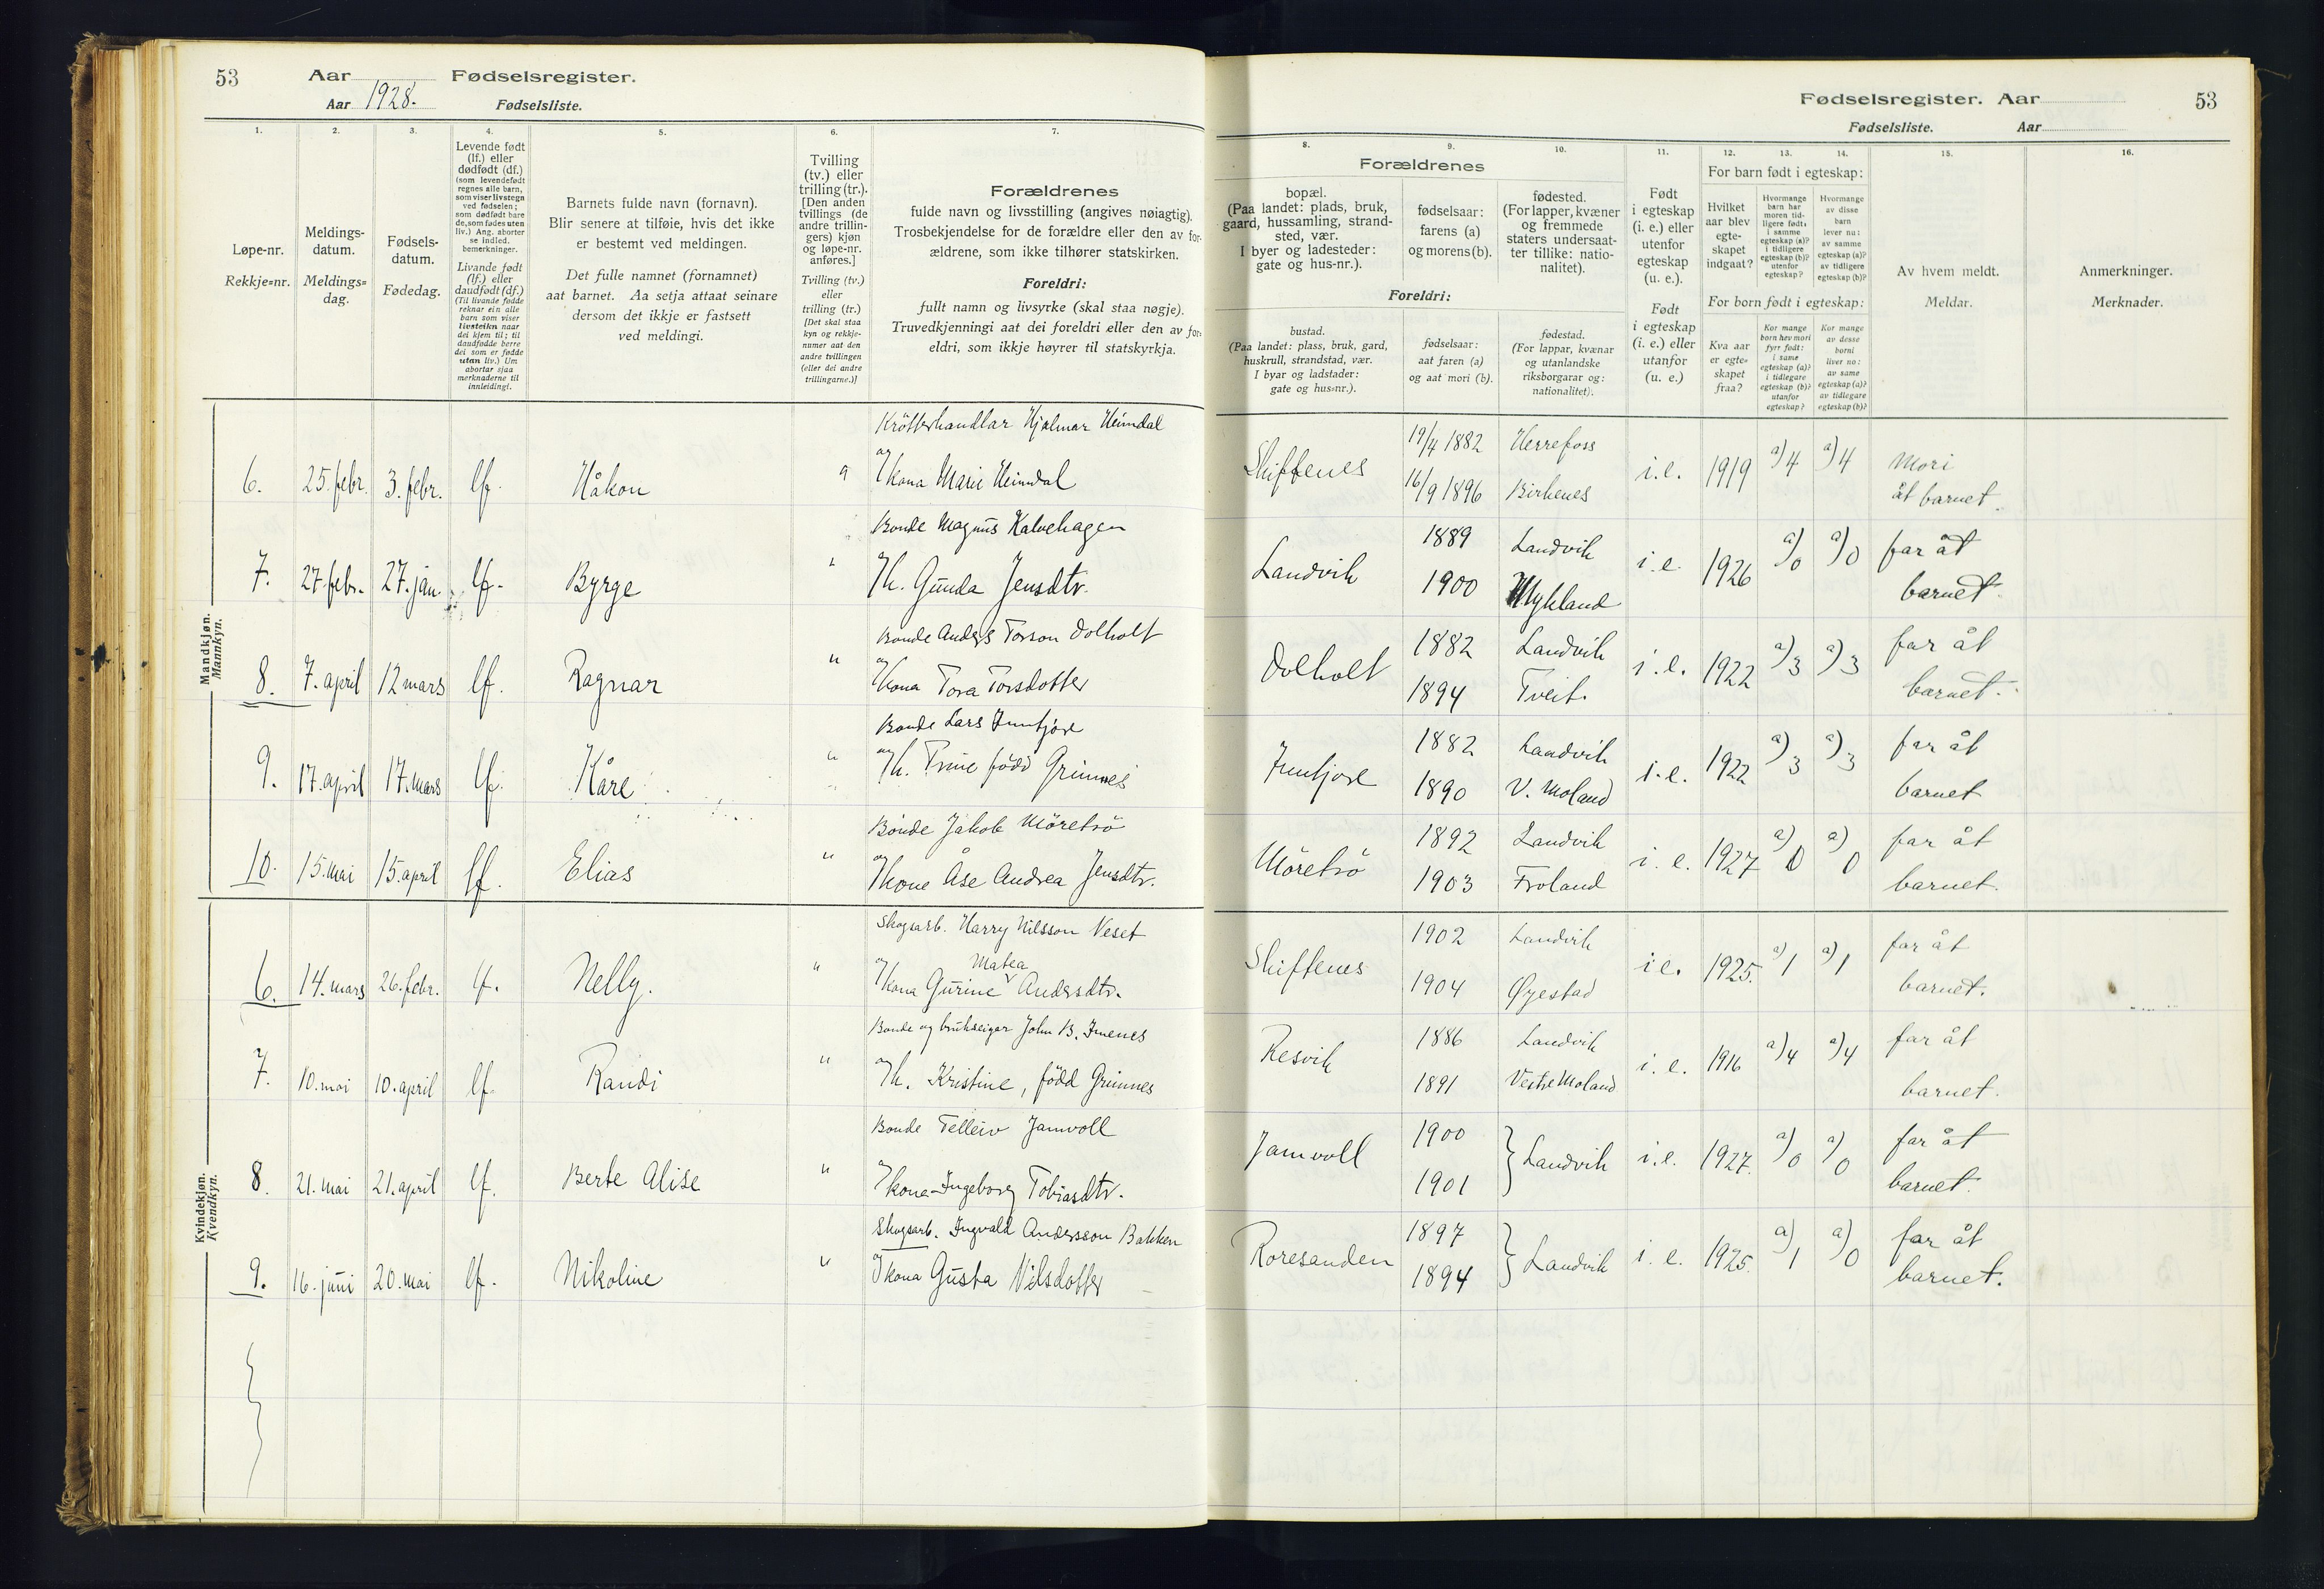 53 Aar Fødselsregister.
Aar 1928. Fødselsliste.
1. 2. 3. 4. 5. 6. 7.
Løpe-nr.
Rekkje=nr.
Meldings-
datum.
Meldings=
dag.
Fødsels-
datum.
Fødedag.
Levende født
(lf.) eller
dødfødt (df.)
(som levendefødt
regnes alle barn,
som viser livstegn
ved fødselen;
som dødfødt bare
de, som fødes uten
liv.) Ang. aborter
se indled.
bemerkninger.
Livande født
(lf.) eller
daudfødt (df.)
(Til livande fødde
reknar ein alle
barn som viser
livsteikn naar
dei kjem til; til
daudfødde berre
dei som er fødde
utan liv.) Um
abortar sjaa
merknaderne til
innleidingi.
Barnets fulde navn (fornavn).
Blir senere at tilføie, hvis det ikke
er bestemt ved meldingen.
Det fulle namnet (fornamnet)
aat barnet. Aa setja attaat seinare
dersom det ikkje er fastsett
ved meldingi.
Tvilling
(tv.) eller
trilling (tr.).
[Den anden
tvillings (de
andre trillin-
gers) kjøn
og løpe-nr.
anføres.]
Tvilling (tv.)
eller
trilling (tr.)
[Det skal staa
kyn og rekkje-
numer aat den
andre tvillingen
(eller dei andre
trillingarne.)]
Forældrenes
fulde navn og livsstilling (angives nøiagtig).
Trosbekjendelse for de forældre eller den av for-
ældrene, som ikke tilhører statskirken.
Foreldri:
fullt namn og livsyrke (skal staa nøgje).
Truvedkjenningi aat dei foreldri eller den av for=
eldri, som ikkje høyrer til statskyrkja.
Mandkjøn.
Mannkyn.
Krötterhandlar Hjalmar Heimdal
6. 25. febr. 3. febr. lf. Håkon og kona Marie Heimdal
Bonde Magnus Kalvehagen
7. 27. febr. 27. jan. lf. Byrge " og k. Gunda Jensdtr.
Bonde Anders Torson Dolholt
8. 7. april 12 mars lf. Ragnar " og kona Tora Torsdotter
Bonde Lars Innfjore
9. 17. april 17. mars lf. Kåre " og k. Trine född Grimnes
Bonde Jakob Möretrö
10. 15. mai 15. april lf. Elias " og kone Åse Andrea Jensdtr.
Kvindekjøn.
Kvendkyn.
Skogsarb. Harry Nilsson Veset
Matea
6. 14. mars 26. febr. lf. Nelly. " og kona Gurine Andersdtr.
Bonde og brukseigar John B. Imenes
7. 10. mai 10. april lf. Randi " og k. Kristine, född Grimnes
Bonde Telleiv Jamvoll
8. 21. mai 21. april lf. Berte Alise " og kona Ingeborg Tobiasdtr.
Skogsarb. Ingvald Andersson Bakken
9. 16. juni 20. mai lf. Nikoline " og kona Gusta Nilsdotter
Fødselsregister. Aar 53
Fødselsliste. Aar
8. 9. 10. 11. 12. 13. 14. 15. 16.
Forældrenes
bopæl.
(Paa landet: plads, bruk,
gaard, hussamling, strand-
sted, vær.
I byer og ladesteder:
gate og hus-nr.).
fødselsaar:
farens (a)
og morens (b).
fødested.
(For lapper, kvæner
og fremmede
staters undersaat-
ter tillike: natio-
nalitet).
Foreldri:
bustad.
(Paa landet: plass, bruk, gard,
huskrull, strandstad, vær.
I byar og ladstader:
gate og hus=nr.).
fødselsaar:
aat faren (a)
og aat mori (b).
fødestad.
(For lappar, kvænar
og utanlandske
riksborgarar og:
nationalitet).
Født
i egteskap
(i. e.) eller
utenfor
egteskap
(u. e.).
Født
i egteskap
(i. e.) eller
utanfor
(u. e.)
For barn født i egteskap:
Hvilket
aar blev
egte-
skapet
indgaat?
Hvormange
barn har
moren tid-
ligere født:
i samme
egteskap (a)?
i tidligere
egteskap (b)?
utenfor
egteskap?
Hvormange
av disse
barn
lever nu:
av samme
egteskap (a)?
av tidligere
egteskap (b)?
For born født i egteskap:
Kva aar
er egte=
skapet
fraa?
Kor mange
born hev mori
fyrr født:
i same
egteskap (a)?
i tidlegare
egteskap (b)?
utanfor
egteskap?
Kor mange
av desse
borni
liver no:
av same
egteskap (a)?
av tidlegare
egteskap (b)?
Av hvem meldt.
Meldar.
Anmerkninger.
Merknader.
Skiftenes 19/4 1882 Herrefoss i.e. 1919 a) 4 a) 4 Mori
16/9 1896 Birkenes åt barnet.
Landvik 1889 Landvik i.e. 1926 a) 0 a) 0 far åt
1900 Mykland barnet.
Dolholt 1882 Landvik i.e. 1922 a) 3 a) 3 far åt
1894 Tveit. barnet.
Innfjore 1882 Landvik i.e. 1922 a) 3 a) 3 far åt
1890 V. Moland barnet
Möretrö 1892 Landvik i.e. 1927 a) 0 a) 0 far åt
1903 Froland barnet.
Skiftenes 1902 Landvik i.e. 1925. a) 1 a) 1 far åt
1904 Øyestad barnet.
Resvik 1886 Landvik i.e. 1916 a) 4 a) 4 far åt
1891 Vestre Moland barnet.
Jamvoll 1900 Landvik i.e. 1927. a) 0 a) 0 far åt
1901 barnet.
Roresanden 1897 Landvik i.e. 1925. a) 1 a) 0 far åt
1894 barnet.